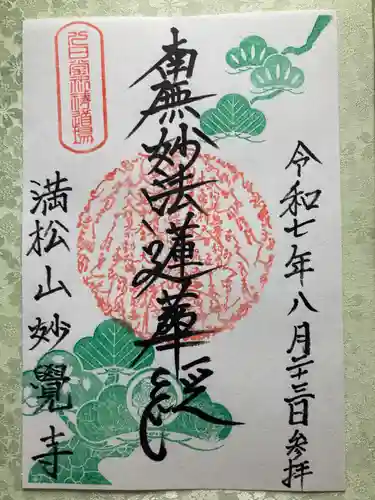 令和七年八月二十三日参拝
南無妙法蓮華経
満松山妙覺寺